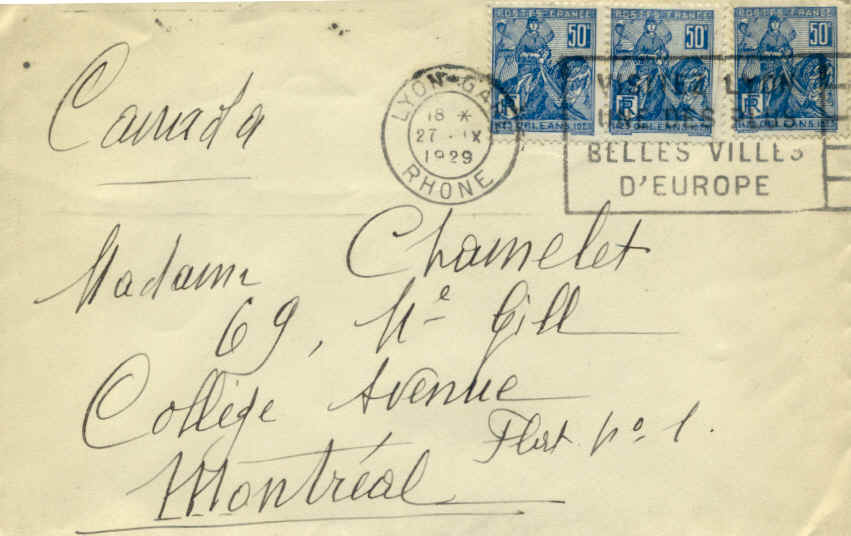 POSTES FRANCE POSTES FRANCE POSTES FRANCE
50c 50c 50c
RF RF RF
ORLEANS ORLEANS ORLEANS
LYON-GA
18 *
27 · IX
1929
RHONE
VISITEZ LYON
UNE DES PLUS
BELLES VILLES
D'EUROPE
Canada
Madame Chamelet
69, Mc Gill
Collège Avenue
Flat No. 1.
Montréal